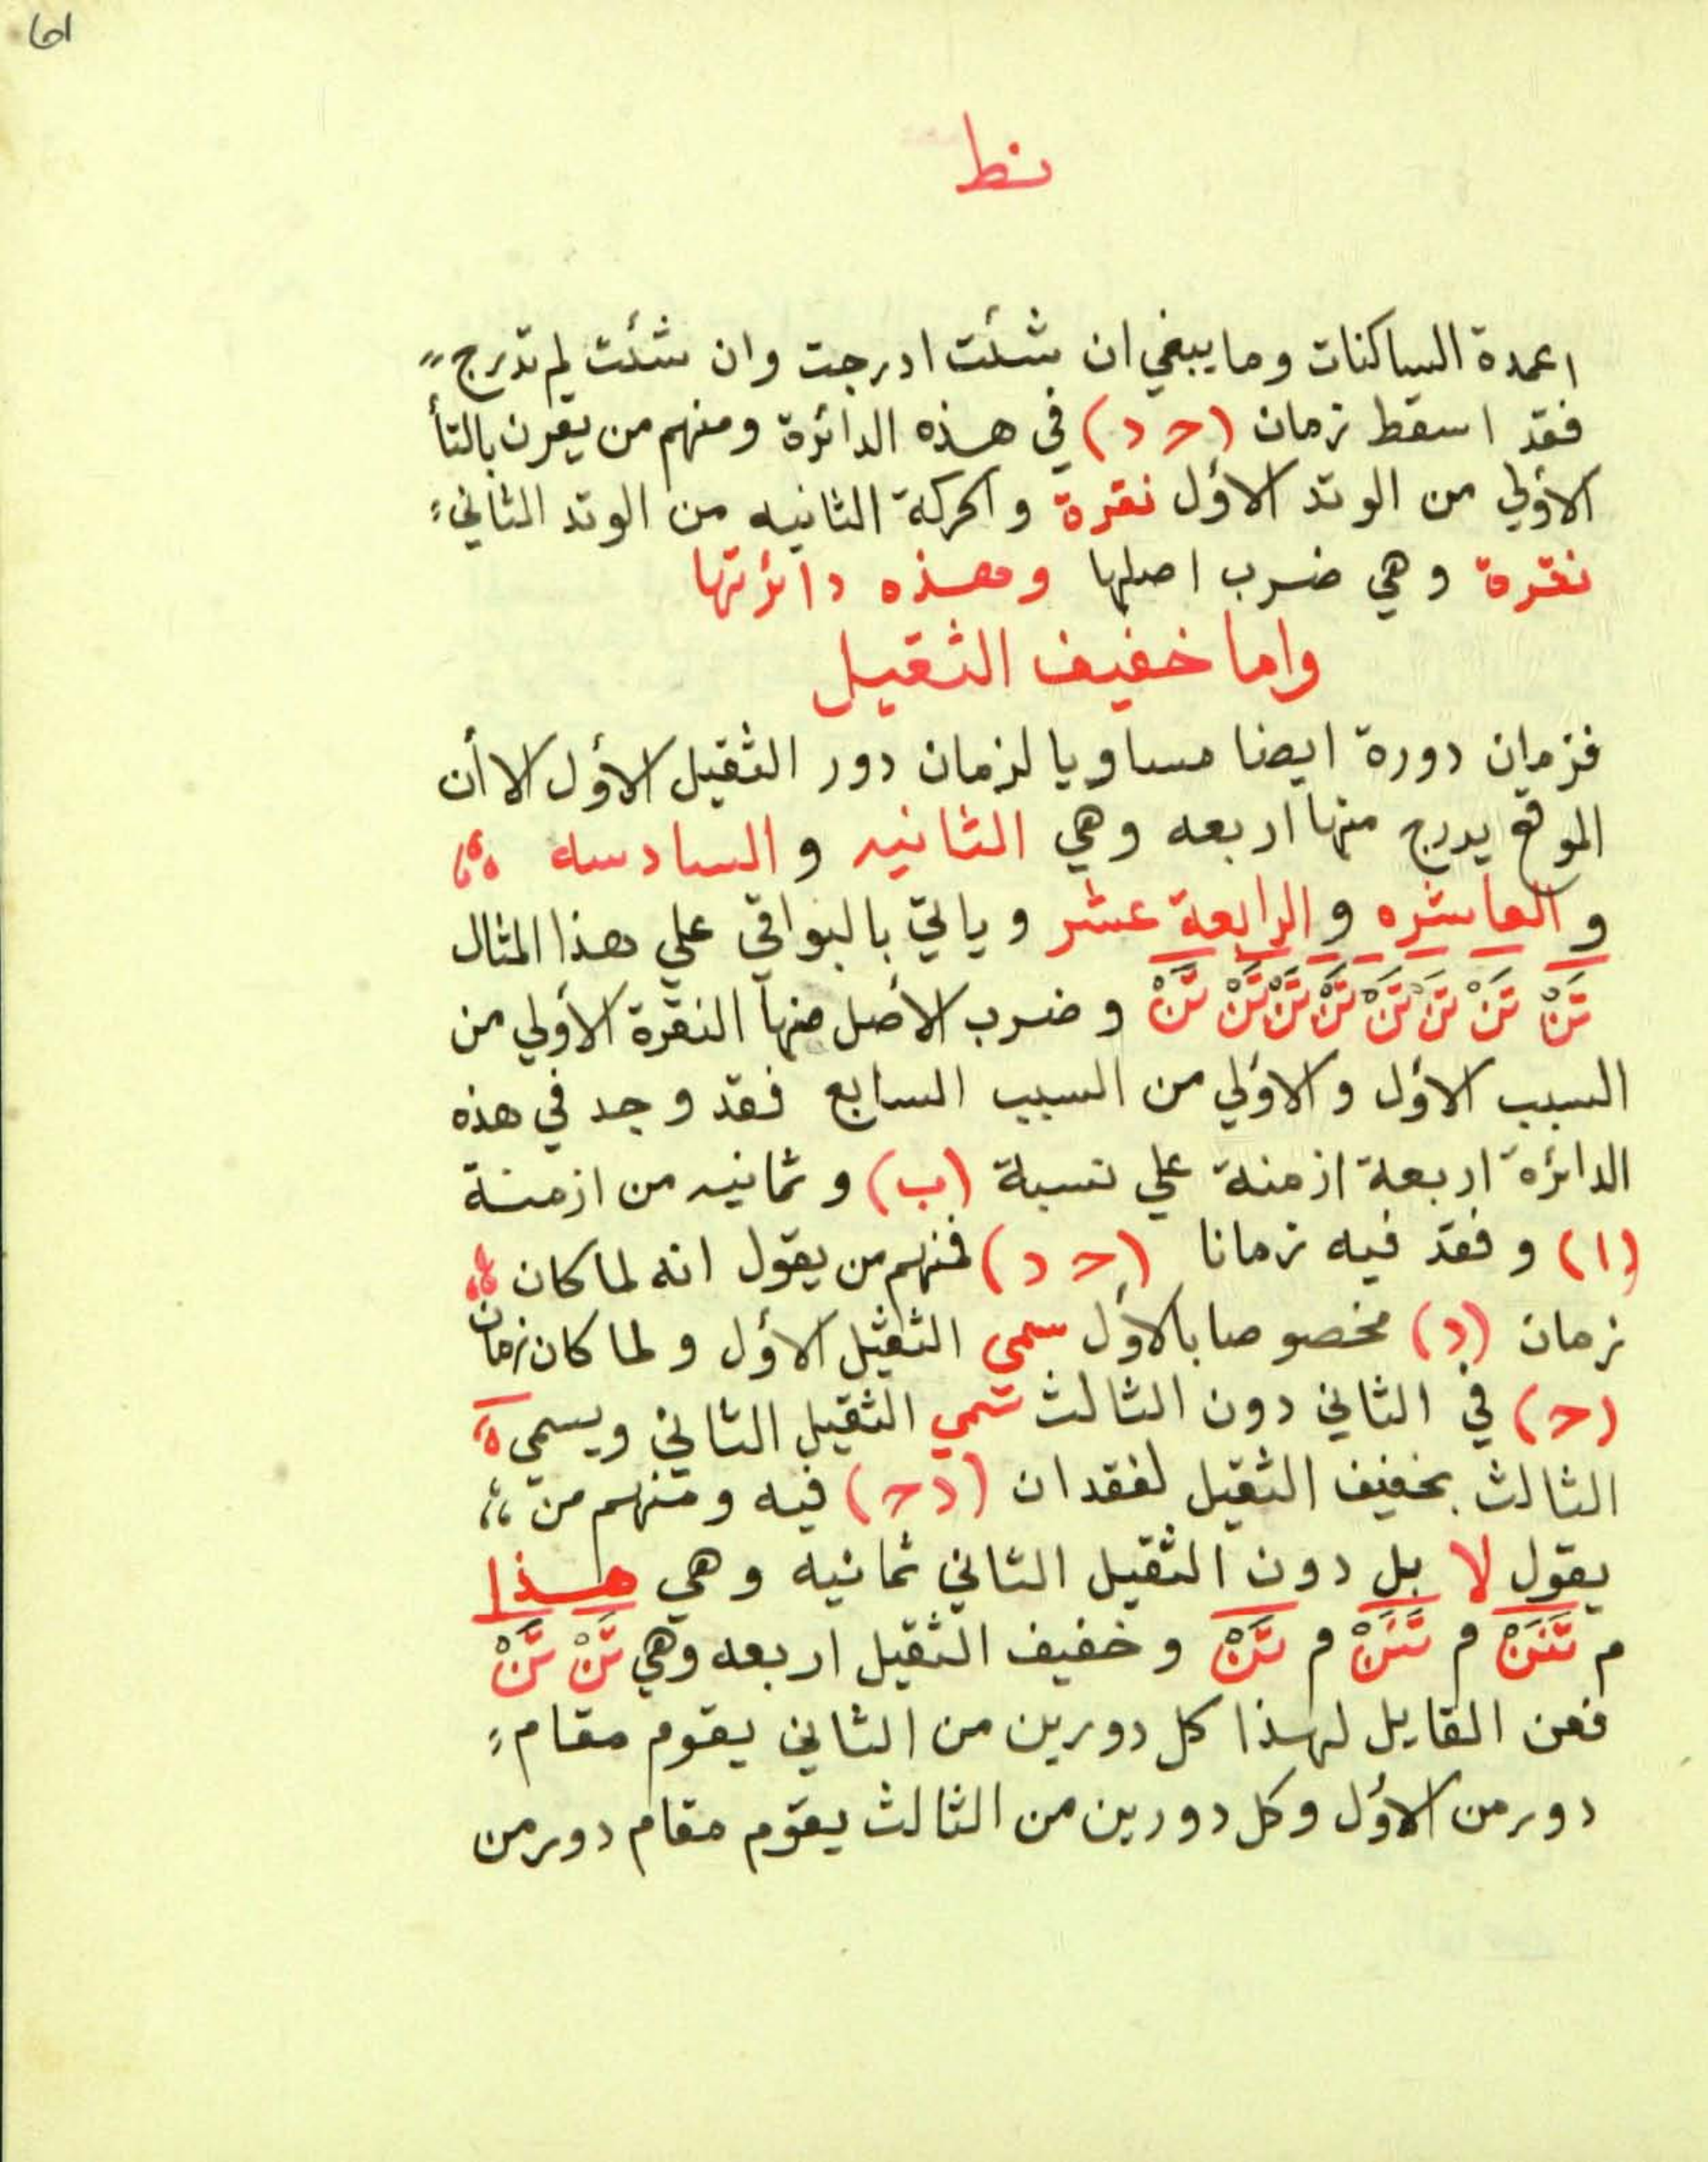 61
نط
اعمدة الساكنات وما يبقي ان شئت ادرجت وان شئت لم تدرج
فقد اسقط زمان (حـ د) في هذه الدائرة ومنهم من يقرن بالتأ
الاولي من الوتد الأول نقرة والحركة الثانيه من الوتد الثاني
نقرة وهي ضرب اصلها وهذه دائرتها
واما خفيف الثقيل
فزمان دورة ايضا مساويا لزمان دور الثقيل الأول الا أن
الموقع يدرج منها اربعه وهي الثانيه والسادسه
والعاشره والرابعة عشر وياتي بالبواقي علي هذا المثال
تَنْ تَنْ تَنْ تَنْ تَنْ تَنْ تَنْ تَنْ وضرب الأصل منها النقرة الأولي من
السبب الأول والاولي من السبب السابع فقد وجد في هذه
الدائرة اربعة ازمنة علي نسبة (ب) وثمانيه من ازمنة
(ا) وفقد فيه زمانا (حـ د) فمنهم من يقول انه لما كان
زمان (د) مخصوصا بالأول سمي الثقيل الأول ولما كان زمان
(حـ) في الثاني دون الثالث سمي الثقيل الثاني ويسمي
الثالث بخفيف الثقيل لفقدان (د حـ) فيه ومنهم من
يقول لا بل دون الثقيل الثاني ثمانيه وهي هذا
م تَنَنْ م تَنَنْ م تَنْ وخفيف الثقيل اربعه وهي تَنْ تَنْ
فعن القايل لهذا كل دورين من الثاني يقوم مقام
دور من الأول وكل دورين من الثالث يقوم مقام دور من